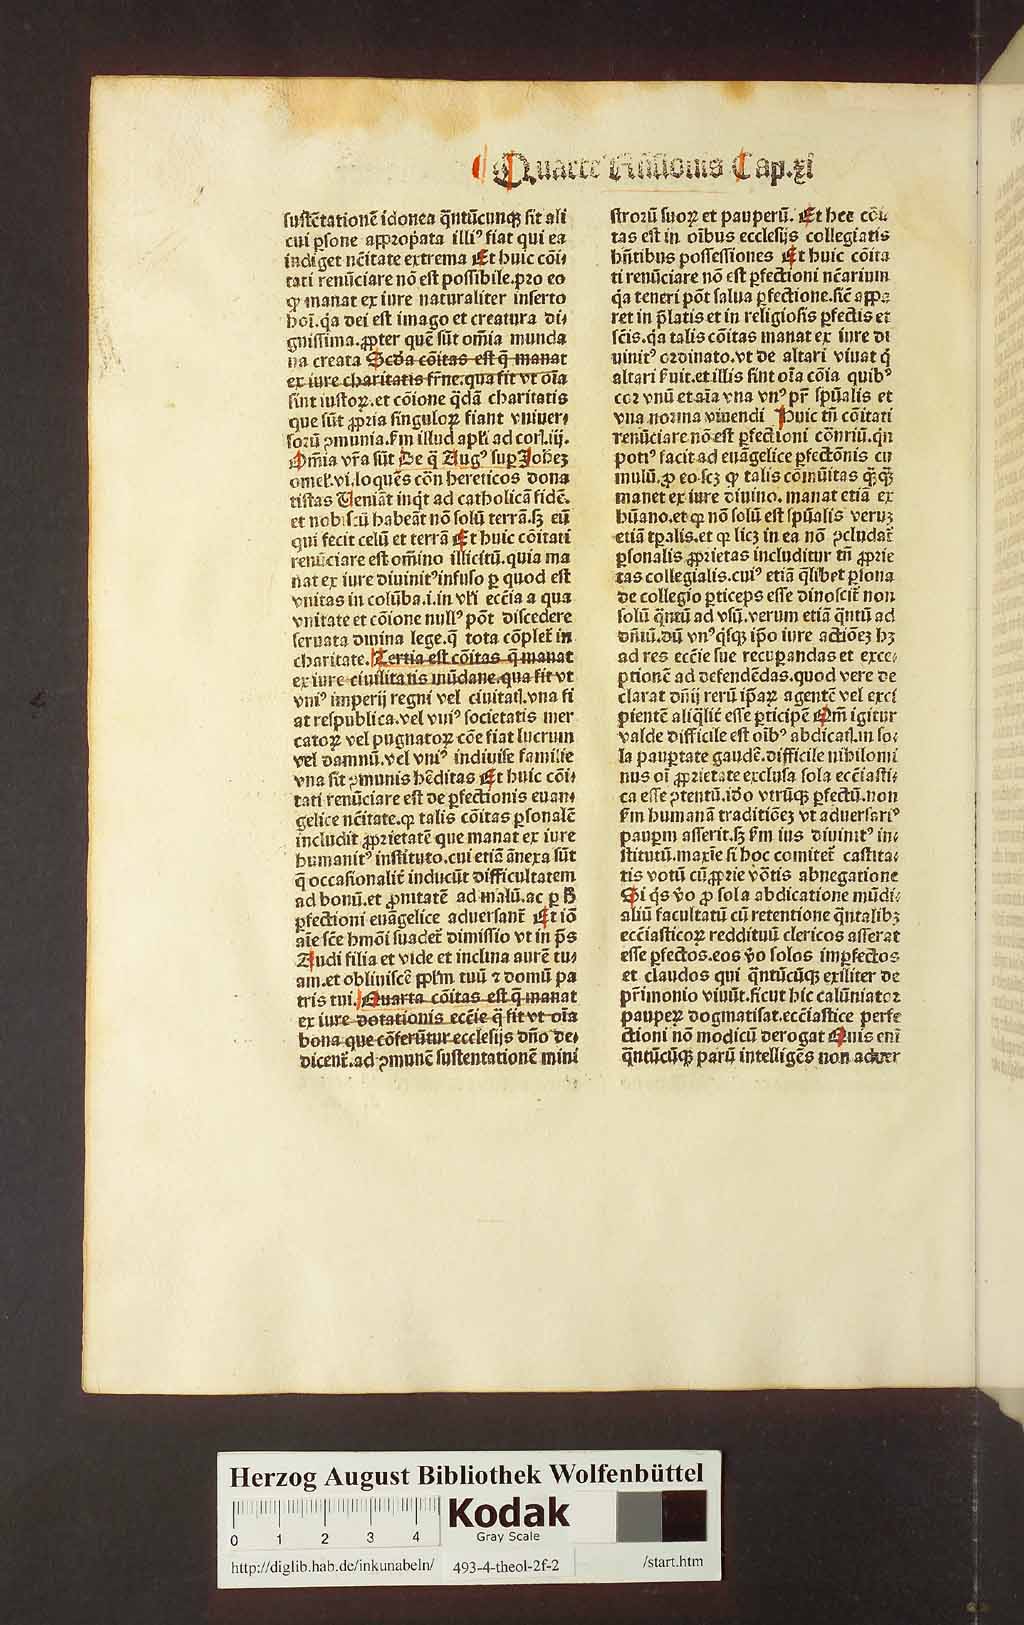 Quarte Cap.xl
sustētationē idonea q̄ntūcunqꝫ sit ali
cui ꝑsone appropͥata illiꝰ fiat qui ea
indiget nc̄itate extrema Et huic cōi⸗
tati renūciare nō est possibile.pro eo
ꝙ manat ex iure naturaliter inserto
hoī.q̄a dei est imago et creatura di⸗
gnissima.ꝓpter quē sūt om̄ia munda
na creata Scd̄a cōitas est q̄ manat
ex iure charitatis fr̄ne.qua fit vt oīa
sint iustoꝝ.et cōione q̄dā charitatis
que sūt ꝓpria singuloꝝ fiant vniuer⸗
soꝝ ꝯmunia.ẜm illud apl̄i ad corī.iij.
Om̄ia vr̄a sūt De q̄ Augꝰ suꝑ Joheꝫ
omel̄.vi.loquēs cōn hereticos dona
tistas Ueniāt inq̄t ad catholicā fidē.
et nobiscū habeāt nō solū terrā.sꝫ eū
qui fecit celū et terrā Et huic cōitati
renūciare est om̄ino illicitū.quia ma
nat ex iure diuinitꝰ infuso ꝑ quod est
vnitas in colūba.i.in vl̄i ecc̄ia a qua
vnitate et cōione nullꝰ pōt discedere
seruata diuina lege.q̄ tota cōplet̄ in
charitate. Tertia est cōitas q̄ manat
ex iure ciuilitatis mūdane.qua fit vt
vniꝰ imperij regni vel ciuitatꝭ.vna fi
at respublica.vel vniꝰ societatis mer
catoꝝ vel pugnatoꝝ cōe fiat lucrum
vel damnū.vel vniꝰ indiuise familie
vna sit ꝯmunis hēditas Et huic cōi⸗
tati renūciare est de ꝑfectionis euan⸗
gelice nc̄itate.ꝙ talis cōitas ꝑsonalē
includit ꝓprietatē que manat ex iure
humanitꝰ instituto.cui etiā ānexa sūt
q̄ occasionalit̄ inducūt difficultatem
ad bonū.et ꝓnitatē ad malū.ac ꝑ B
ꝑfectioni euāgelice aduersant̄ Et iō
aīe sc̄e hmōi suadet̄ dimissio vt in p̄s
Audi filia et vide et inclina aurē tu⸗
am.et obliuiscē ppl̄m tuū ⁊ domū pa
tris tui. Quarta cōitas est q̄ manat
ex iure dotationis ecc̄ie q̄ fit vt oīa
bona que cōferūtur ecclesijs dn̄o de⸗
dicent̄.ad ꝯmunē sustentationē mini
stroꝝ suoꝝ et pauperū. Et hec cōi⸗
tas est in oībus ecclesijs collegiatis
hn̄tibus possessiones Et huic cōita
ti renūciare nō est ꝑfectioni nc̄arium
q̄a teneri pōt salua ꝑfectione.sic̄ appa
ret in p̄latis et in religiosis ꝑfectis et
sc̄is.q̄a talis cōitas manat ex iure di
uinitꝰ ordinato.vt de altari viuat q̄
altari ẜuit.et illis sint oīa cōia quibꝰ
cor vnū et aīa vna vnꝰ pr̄ spūalis et
vna norma viuendi Huic tn̄ cōitati
renūciare nō est ꝑfectioni cōnriū.q̄n
potiꝰ facit ad euāgelice ꝑfectōnis cu
mulū.ꝓ eo.scꝫ ꝙ talis comūitas q̄ꝫq̄ꝫ
manet ex iure diuino.manat etiā ex
hūano.et ꝙ nō solū est spūalis veruꝫ
etiā tꝑalis.et ꝙ licꝫ in ea nō ꝯcludat̄
ꝑsonalis ꝓprietas includitur tn̄ ꝓprie
tas collegialis.cuiꝰ etiā q̄libet ꝑsona
de collegio ꝑticeps esse dinoscit̄ non
solū q̄ntū ad vsū.verum etiā q̄ntū ad
dn̄iū.dū vnꝰq̄sqꝫ ip̄o iure actiōeꝫ hꝫ
ad res ecc̄ie sue recuꝑandas et exce⸗
ptionē ad defendēdas.quod vere de
clarat dn̄ij rerū ip̄aꝝ agentē vel exci
pientē aliq̄lit̄ esse ꝑticipē Om̄ igitur
valde difficile est oībꝰ abdicatꝭ.in so⸗
la paupertate gaudē.difficile nihilomi
nus oī ꝓprietate exclusa sola ecc̄iasti⸗
ca esse ꝯtentū.iō vtrūqꝫ ꝑfectū.non
ẜm humanā traditiōeꝫ vt aduersariꝰ
pauꝑm asserit.sꝫ ẜm ius diuinitꝰ in⸗
stitutū.maxīe si hoc comitet̄ castita⸗
tis votū cū ꝓprie vōtis abnegatione
Si q̄s v̄o ꝓ sola abdicatione mūdi⸗
aliū facultatū cū retentione q̄ntalibꝫ
ecc̄iasticoꝝ reddituū clericos asserat
esse ꝑfectos.eos v̄o solos imꝑfectos
et claudos qui q̄ntūcūqꝫ exiliter de
pr̄imonio viuūt.sicut hic calūniator
pauꝑeꝝ dogmatisat.ecc̄iastice perfe
ctioni nō modicū derogat Quis enī
q̄ntūcūqꝫ parū intelligēs non aduer
Herzog August Bibliothek Wolfenbüttel
0 1 2 3 4
Kodak
Gray Scale
http://diglib.hab.de/inkunabeln/ 493-4-theol-2f-2 /start.htm